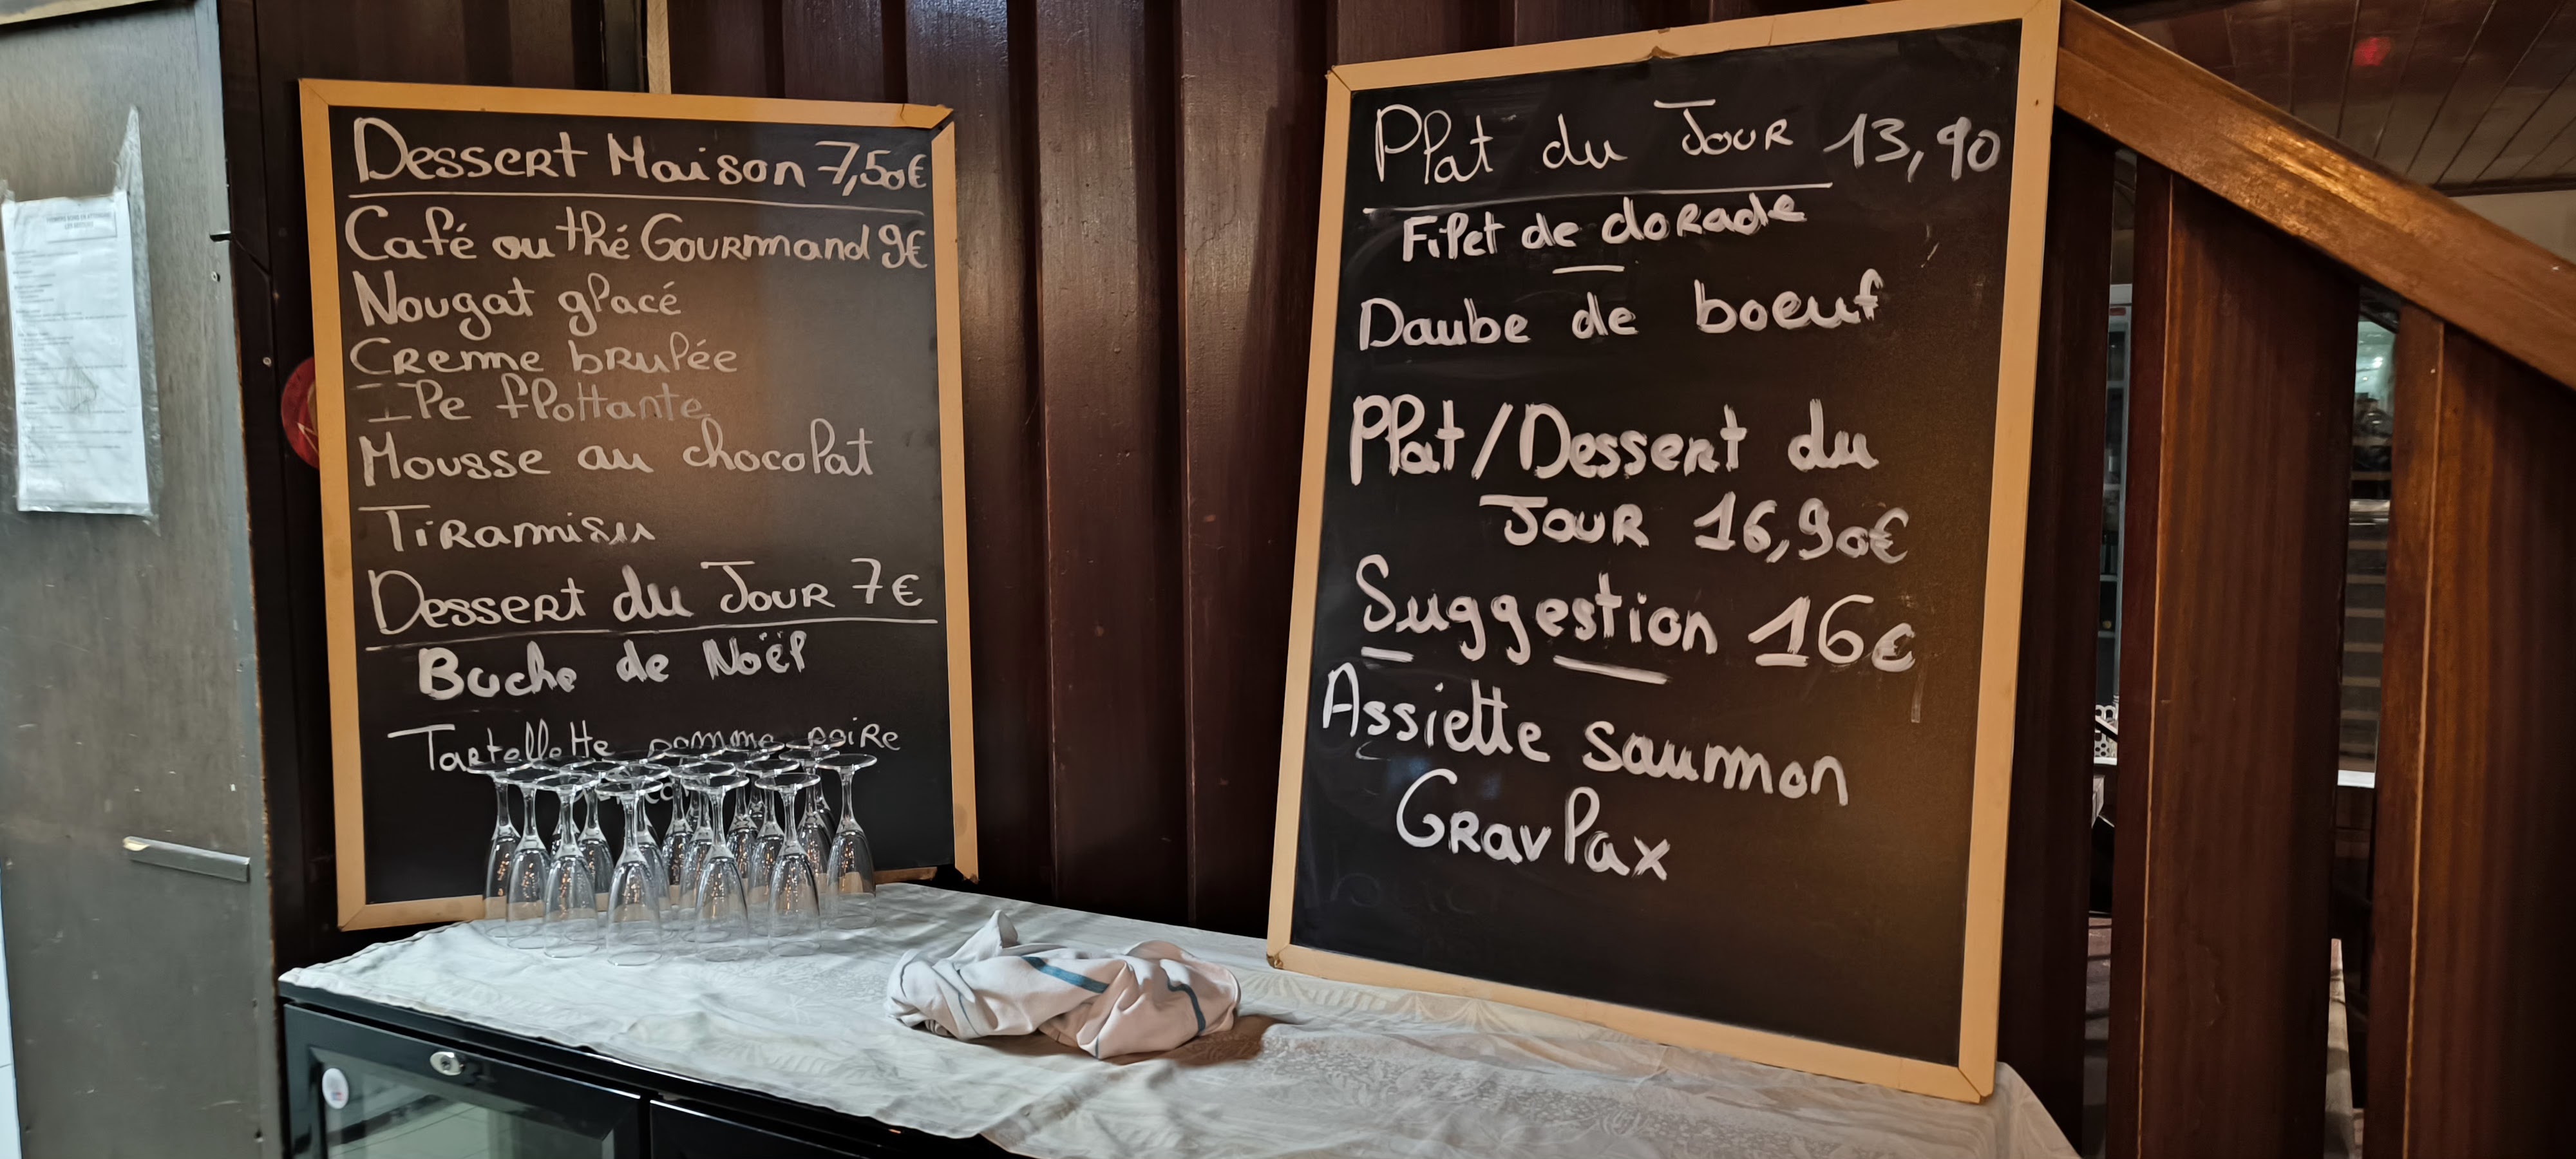 Dessert Maison 7,50€
Café ou thé Gourmand 9€
Nougat glacé
Creme brulée
Ile flottante
Mousse au chocolat
Tiramisu
Dessert du Jour 7€
Buche de Noël
Tartellette pomme poire
Plat du Jour 13,90
Filet de dorade
Daube de boeuf
Plat/Dessert du
Jour 16,90€
Suggestion 16€
Assiette saumon
Gravlax